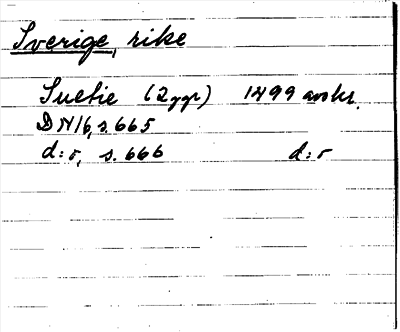 Sverige, rike
Suetie (2 ggr) 1499 avskr.
DN 16, s. 665
d:o, s. 666 d:o